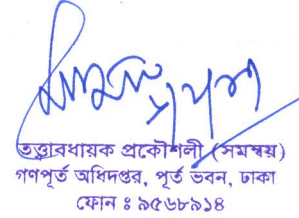 তত্ত্বাবধায়ক প্রকৌশলী (সমন্বয়)
গণপূর্ত অধিদপ্তর, পূর্ত ভবন, ঢাকা
ফোন ঃ ৯৫৬৮৯১৪